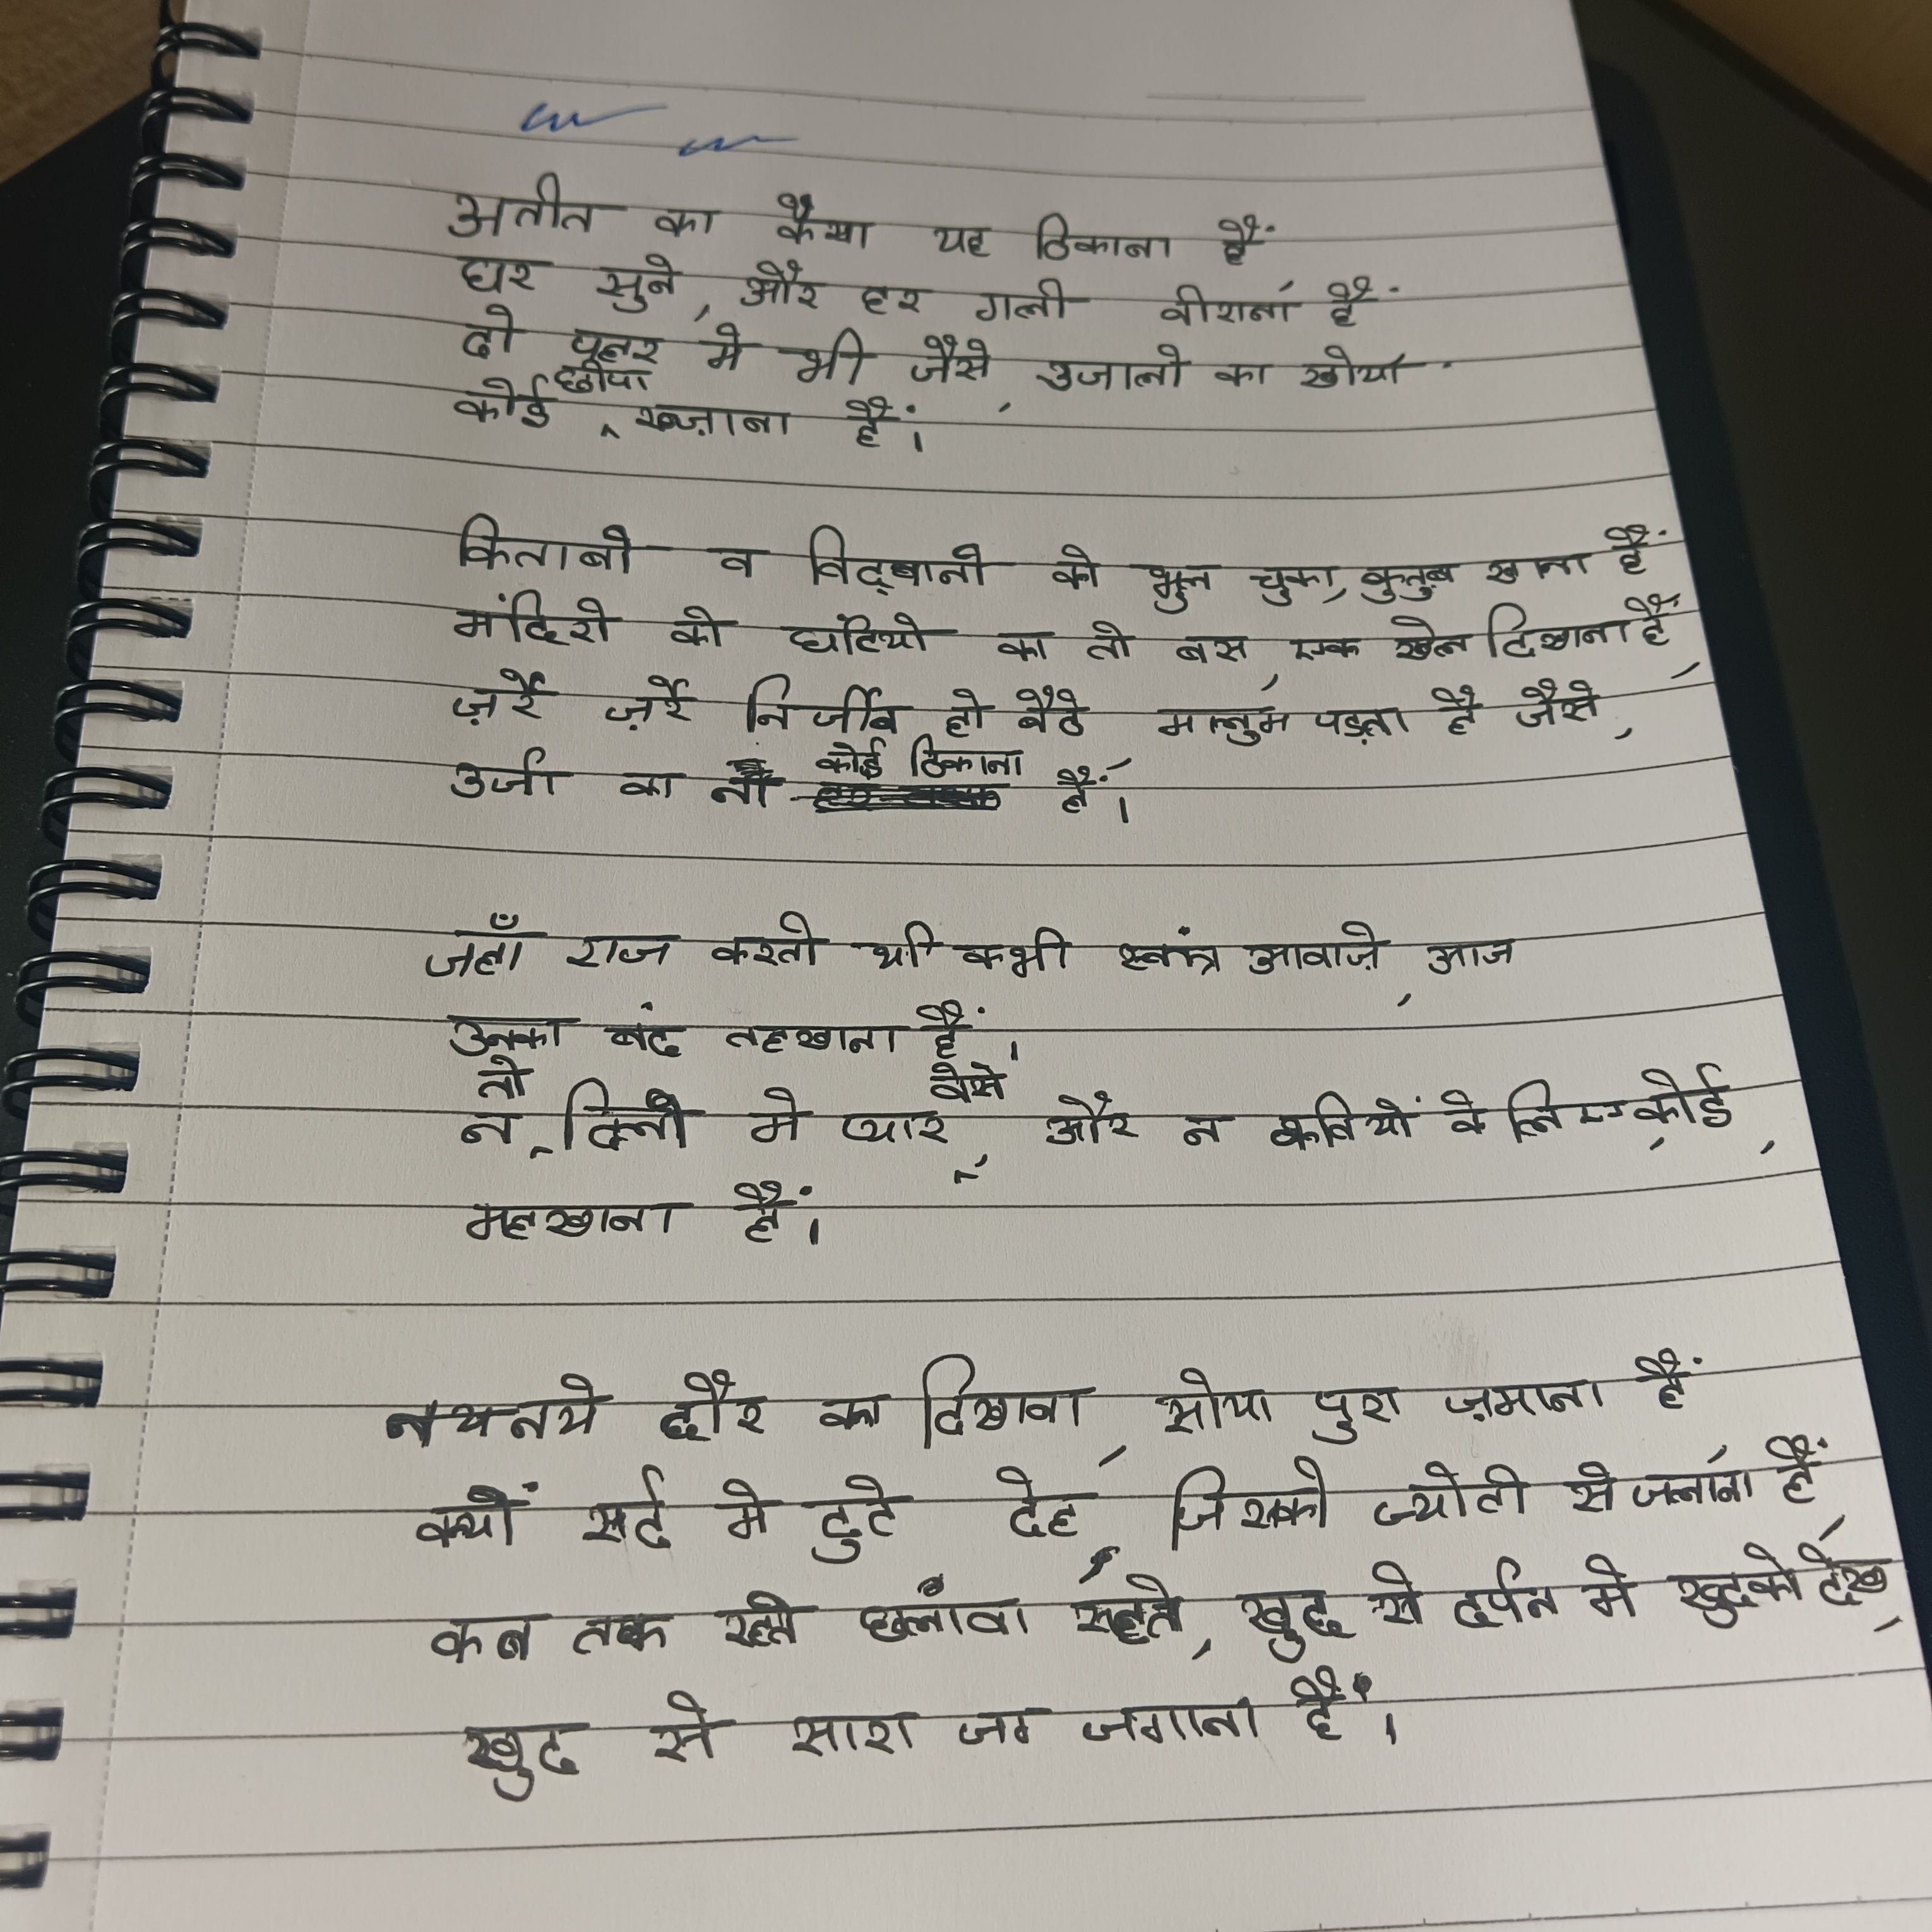 अतीत का कैसा यह ठिकाना हैं
घर सुने, और हर गली वीराना हैं
दो पहर मे भी जैसे, उजालो का खोया
कोई छीपा खज़ाना हैं।
किताबो व विद्वानो को भुल चुका, कुतुब खाना हैं
मंदिरो की घंटियो का तो बस, एक खेल दिखाना हैं,
ज़र्रे ज़र्रे निर्जीव हो बैठे मालुम पड़ता है जैसे,
उर्जा का ना कोई ठिकाना हैं।
जहाँ राज करती थी कभी स्वतंत्र आवाज़े, आज
उनका बंद तहखाना हैं।
न तो दिलो मे प्यार वैसे, और न कवियों के लिए कोई,
महखाना हैं।
नय नये दौर का दिखावा, सोया पुरा ज़माना हैं
क्यों सर्द मे टुटे देह, जिसको ज्योती से जलाना हैं,
कब तक रहे छलावा सहते, खुद से दर्पन मे खुदको देख,
खुद से सारा जग जगाना हैं।